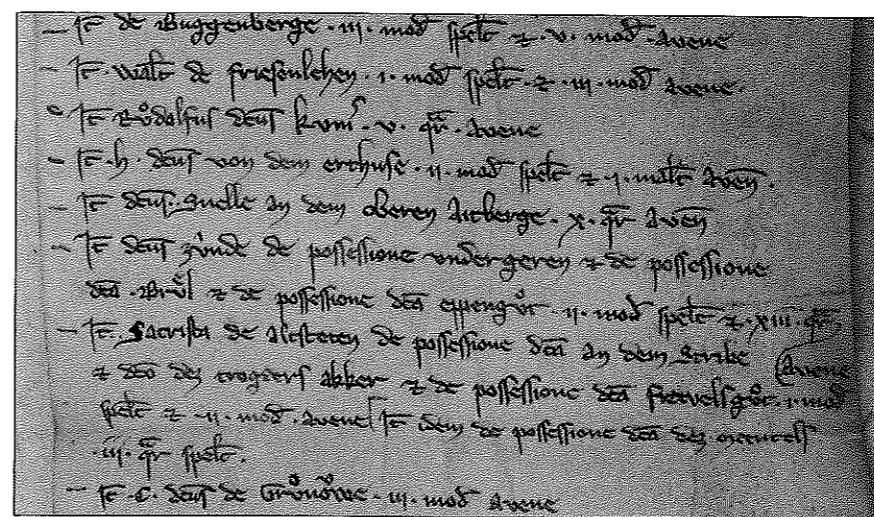 – It̄ de Buggenberge · iii · mod̄ spelt̄ ⁊ · v · mod̄ · avene
– It̄ · walt̄ de friesenlehen · i · mod̄ spelt̄ · ⁊ · iii · mod̄ avene ·
It̄ Růdolfus dc̄us · v · q̄r · avene
– It̄ · h · dc̄us von dem erchuse · ii · mod̄ spelt̄ ⁊ · i · malt̄ aven̄ ·
– It̄ dc̄us · Snelle an dem oberen Aicberge · x · q̄r aven̄
– It̄ dc̄us zůnde de possessione undergeren ⁊ de possessione
dc̄a · Brůl ⁊ de possessione dc̄a eppengůt · ii · mod̄ spelt̄ ⁊ · xiii · q̄r
– It̄ · Sacrista de Altsteten de possessione dc̄a an dem Stribe (avene
⁊ dc̄o dez trogeers akker ⁊ de possessione dc̄a frevelsgůt · i · mod̄
spelt̄ ⁊ · ii · mod̄ · avene It̄ idem de possessione dc̄a dez
· iii · q̄r spelt̄ ·
– It̄ · C · dc̄us de Grůnoͮwe · iii · mod̄ avene